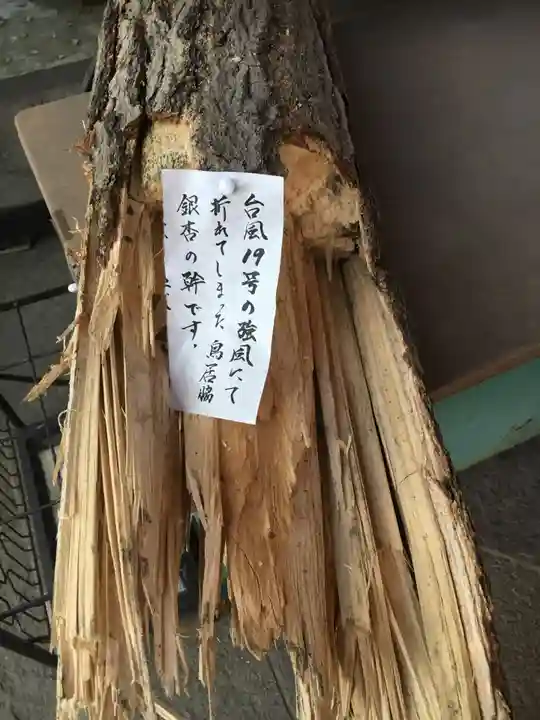 台風19号の強風にて
折れてしまった鳥居脇
銀杏の幹です。